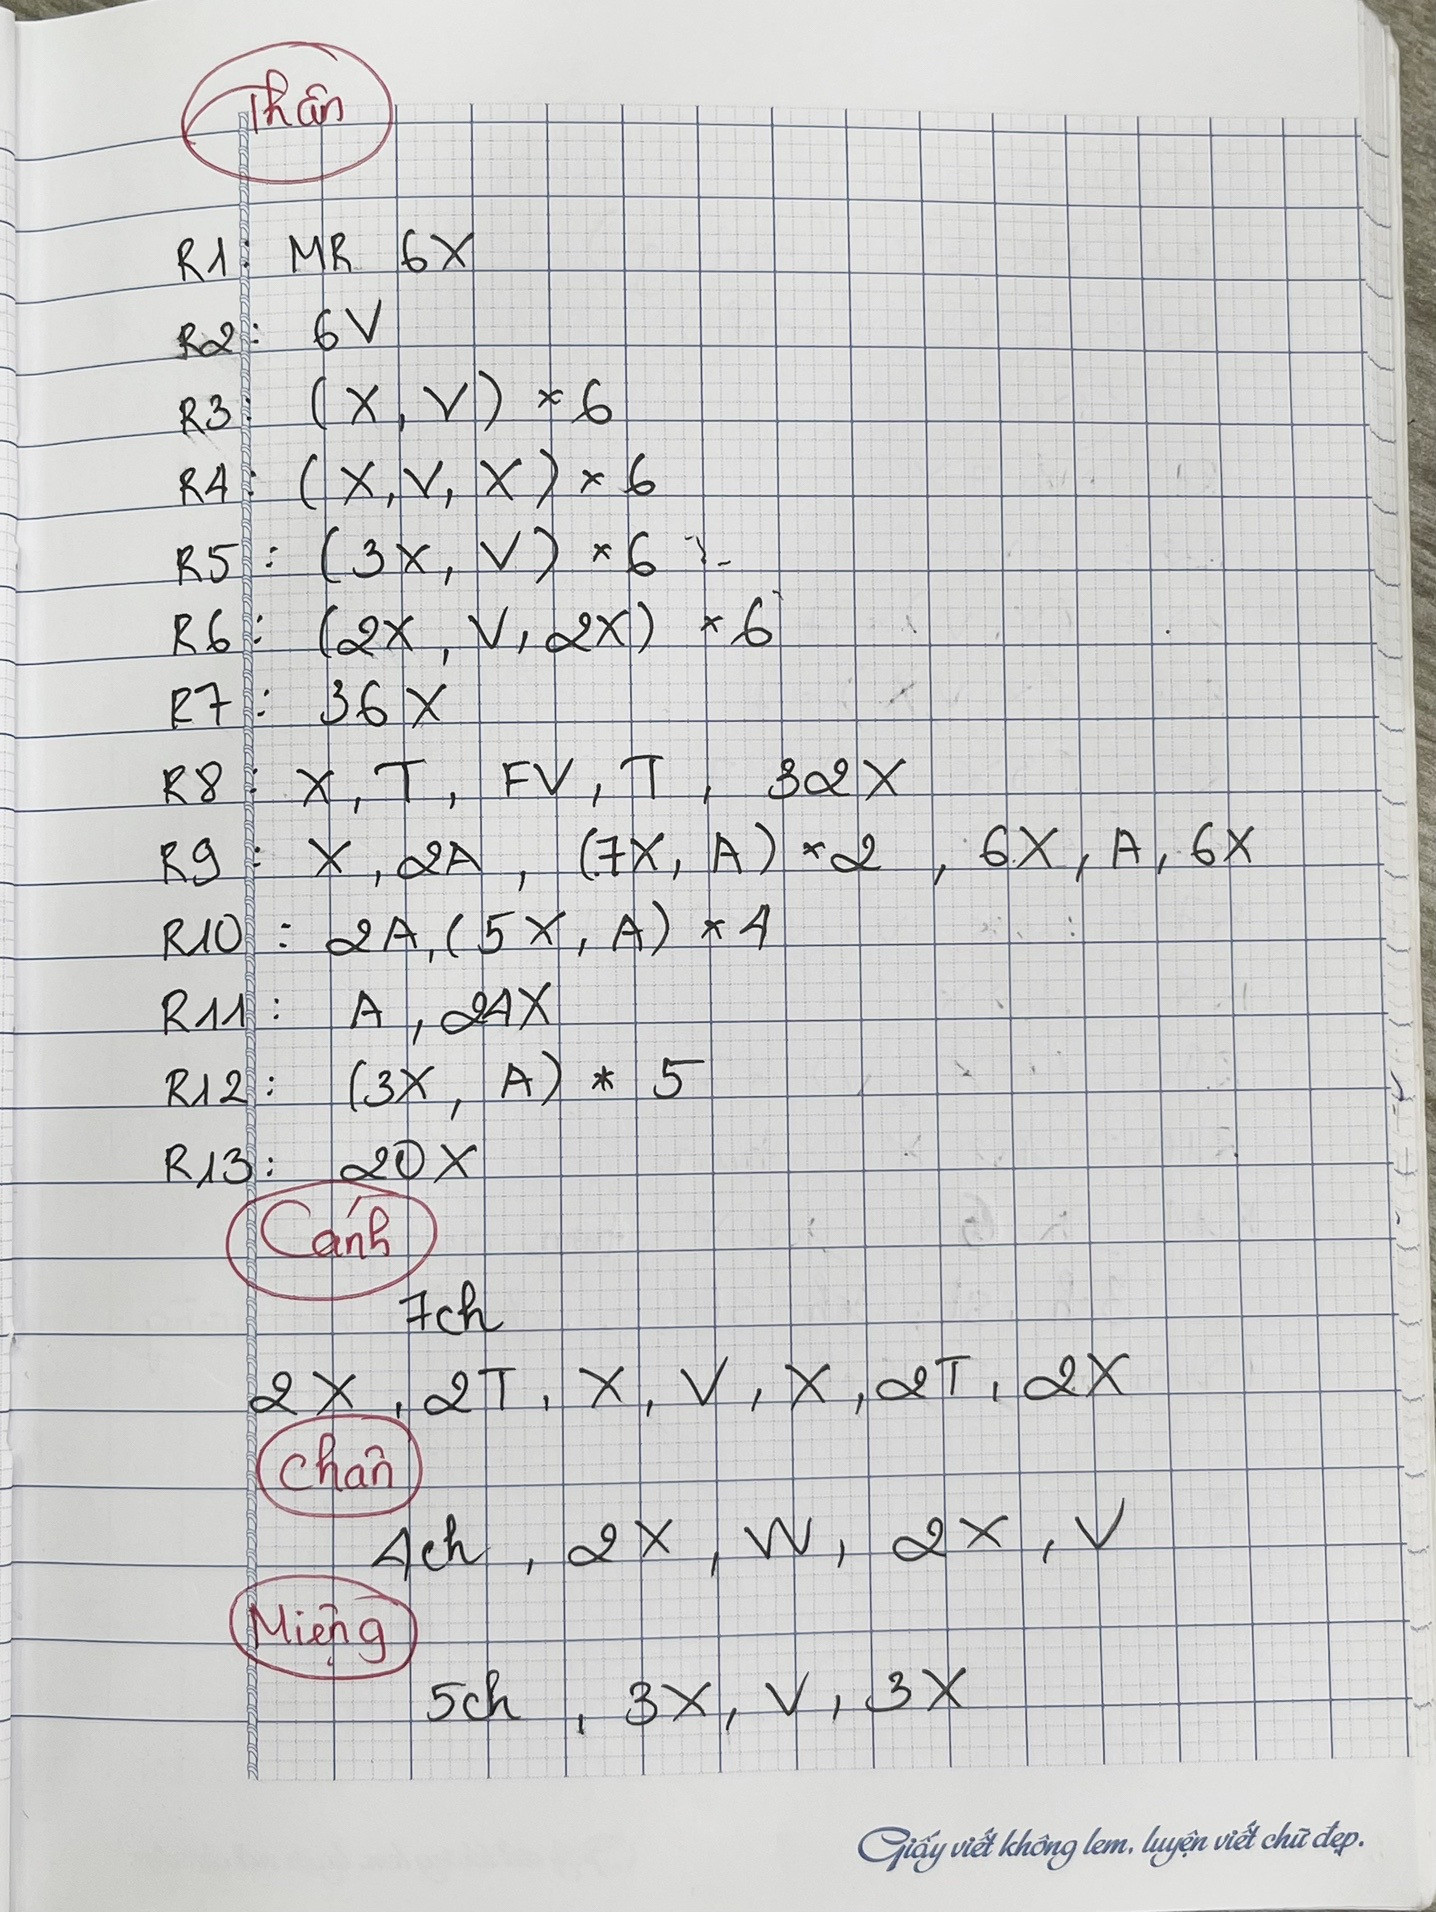 Thân
R1: MR 6X
R2: 6V
R3: (X, V) * 6
R4: (X, V, X) * 6
R5: (3X, V) * 6
R6: (2X, V, 2X) * 6
R7: 36X
R8: X, T, FV, T, 32X
R9: X, 2A, (7X, A) * 2, 6X, A, 6X
R10: 2A, (5X, A) * 4
R11: A, 24X
R12: (3X, A) * 5
R13: 20X
Cánh
7ch
2X, 2T, X, V, X, 2T, 2X
Chân
4ch, 2X, W, 2X, V
Miệng
5ch, 3X, V, 3X
Giấy viết không lem, luyện viết chữ đẹp.